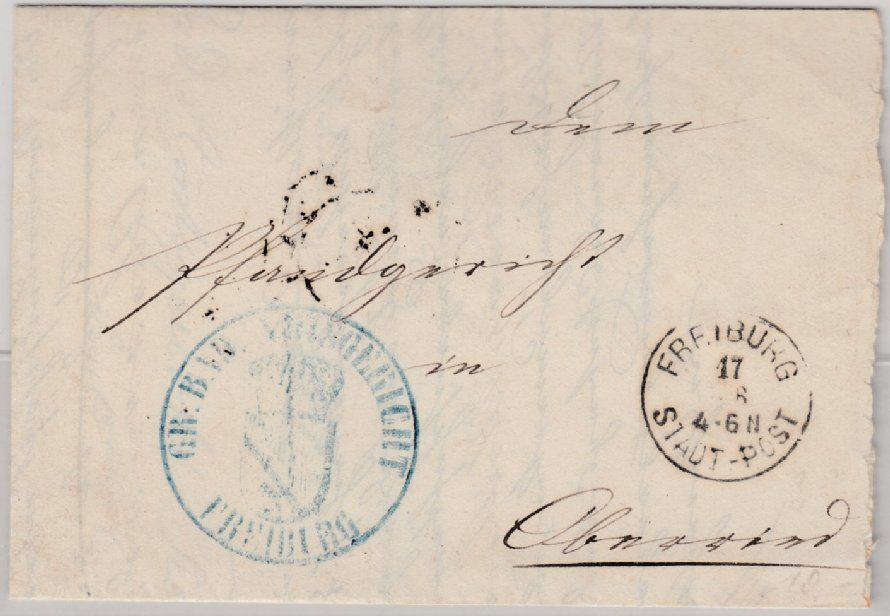 Dem
Pfandgericht
in
Oberried
GR: BAD.
FREIBURG
FREIBURG
17
8
4-6 N
STADT-POST
10.-